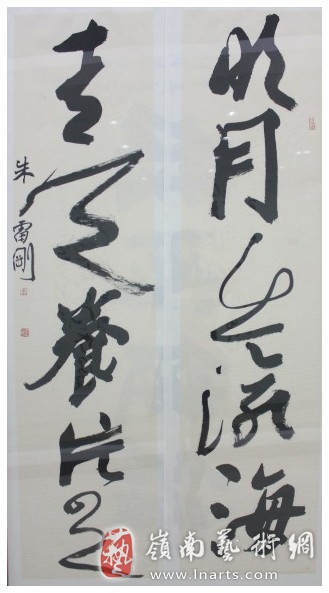 明月出滄海
青天養片雲
朱雷剛
藝 嶺南藝術網
www.lnarts.com